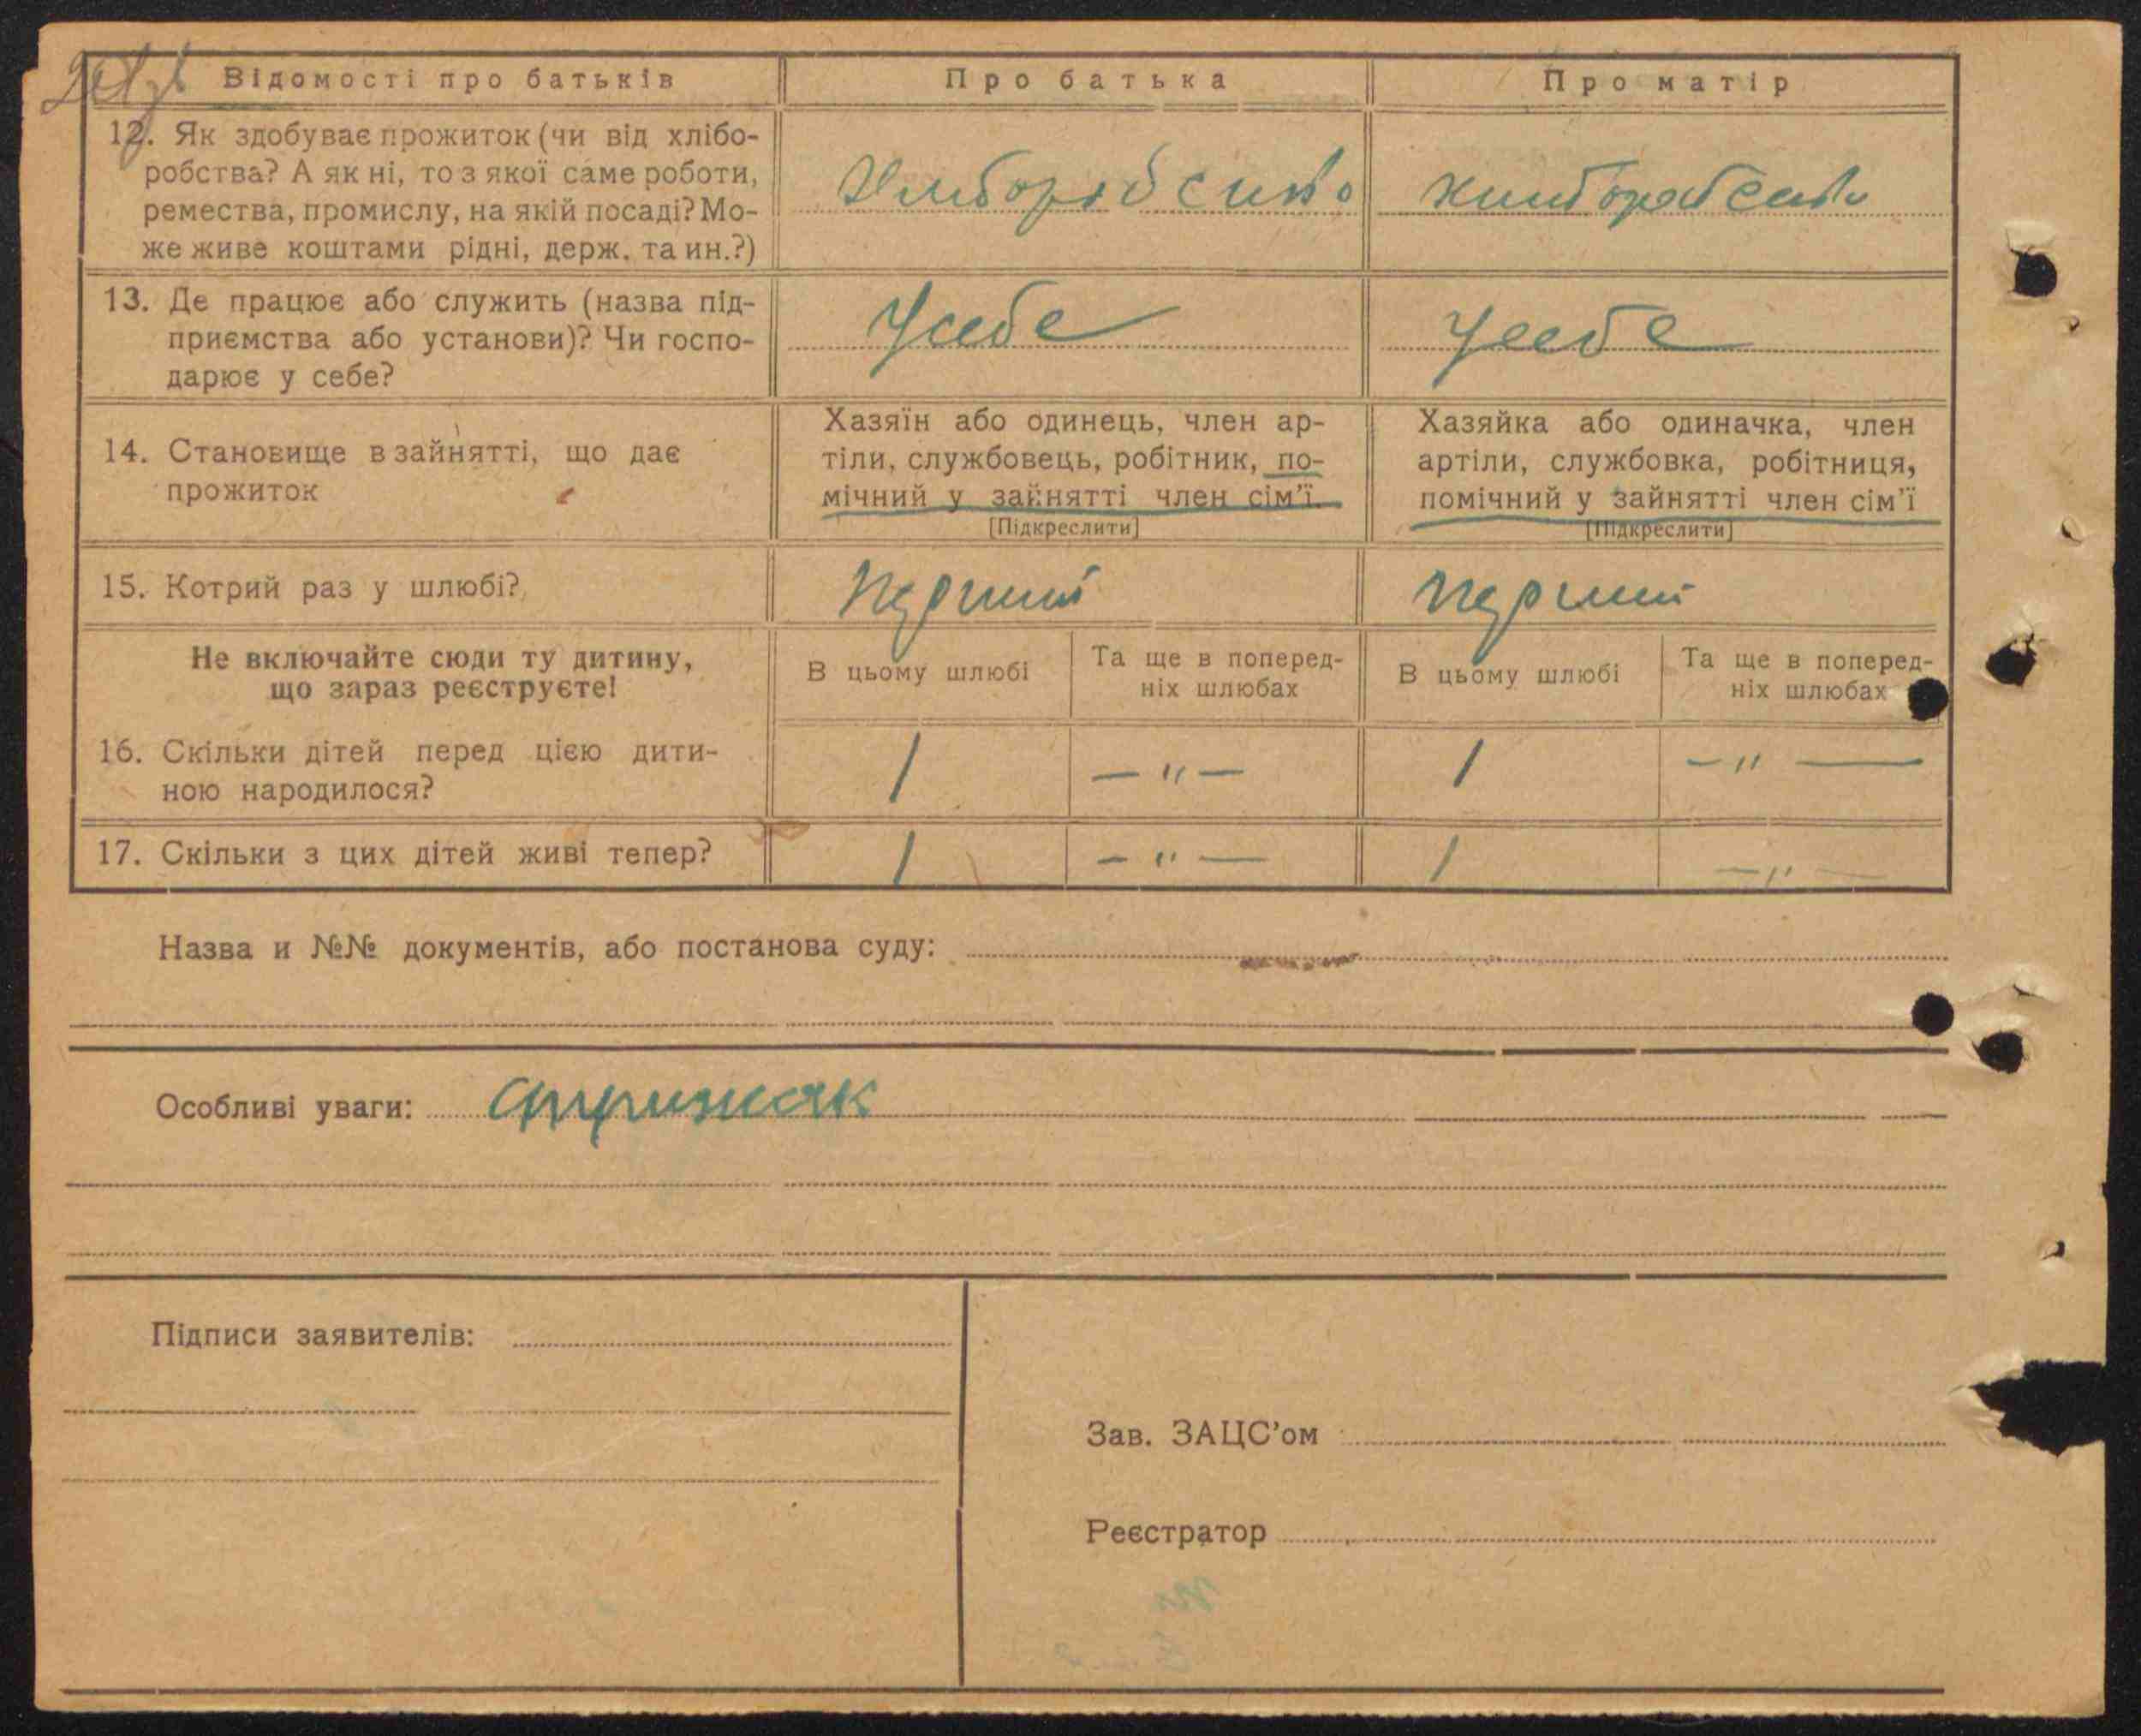 Відомості про батьків
Про батька
Про матір
12. Як здобуває прожиток (чи від хлібо-
робства? А як ні, то з якої саме роботи,
ремества, промислу, на якій посаді? Мо-
же живе коштами рідні, держ. та ин.?)
Хліборобство
Хліборобство
13. Де працює або служить (назва під-
приємства або установи)? Чи госпо-
дарює у себе?
У себе
У себе
14. Становище в зайнятті, що дає
прожиток
Хазяїн або одинець, член ар-
тіли, службовець, робітник, по-
мічний у зайнятті член сім'ї
[Підкреслити]
Хазяйка або одиначка, член
артіли, службовка, робітниця,
помічний у зайнятті член сім'ї
[Підкреслити]
15. Котрий раз у шлюбі?
перший
перший
Не включайте сюди ту дитину,
що зараз реєструєте!
В цьому шлюбі
Та ще в поперед-
ніх шлюбах
В цьому шлюбі
Та ще в поперед-
ніх шлюбах
16. Скільки дітей перед цією дити-
ною народилося?
1 — " — 1 — " —
17. Скільки з цих дітей живі тепер?
1 — " — 1 — " —
Назва и №№ документів, або постанова суду:
Особливі уваги: Стрижак
Підписи заявителів:
Зав. ЗАЦС'ом
Реєстратор